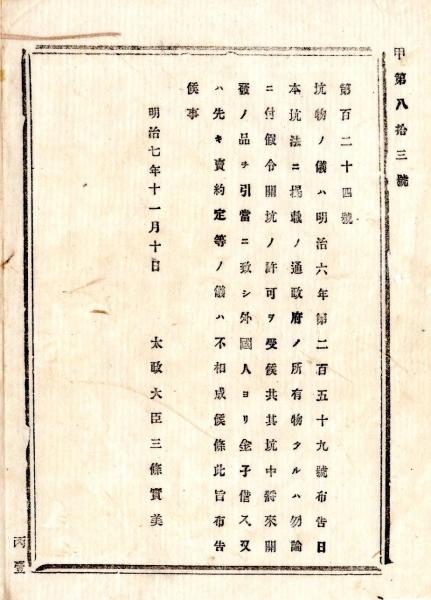 甲第八拾三號
第百二十四號
坑物ノ儀ハ明治六年第二百五十九號布告日
本坑法ニ掲載ノ通政府ノ所有物タルハ勿論
ニ付假令開坑ノ許可ヲ受候共其坑中將來開
發ノ品ヲ引當ニ致シ外國人ヨリ金子借入又
ハ先キ賣約定等ノ儀ハ不相成候條此旨布告
候事
明治七年十一月十日
太政大臣三條實美
丙壹